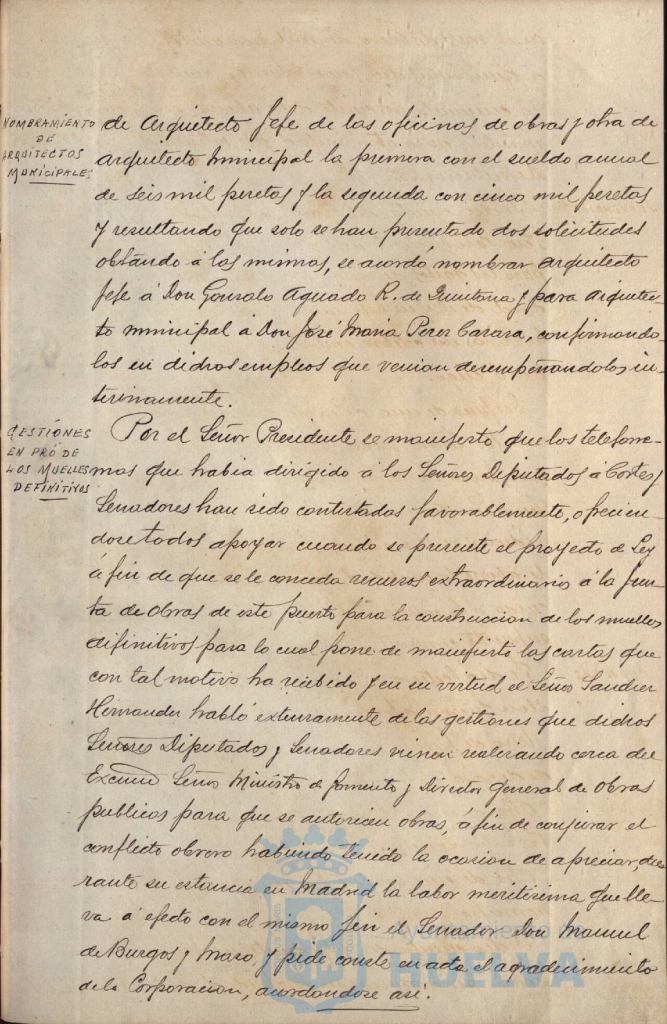 NOMBRAMIENTO
DE
ARQUITECTOS
MUNICIPALES
de Arquitecto Jefe de las oficinas de obras y otra de
arquitecto municipal la primera con el sueldo anual
de seis mil pesetas y la segunda con cinco mil pesetas
y resultando que solo se han presentado dos solicitudes
obtando á las mismas, se acordó nombrar arquitecto
Jefe á Don Gonzalo Aguado R. de Quintana y para arquitec-
to municipal á Don José Maria Perez Carasa, confirmando-
los en dichos empleos que venian desempeñandolos in-
terinamente.
GESTIONES
EN PRÓ DE
LOS MUELLES
DEFINITIVOS
Por el Señor Presidente se manifestó que los telefone-
mas que habia dirigido á los Señores Diputados á Cortes y
Senadores han sido contestados favorablemente, ofrecien-
dose todos apoyar cuando se presente el proyecto de Ley
á fin de que se le conceda recursos extraordinarios á la Jun-
ta de Obras de este puerto para la construccion de los muelles
difinitivos para lo cual pone de manifiesto las cartas que
con tal motivo ha recibido y en su virtud el Señor Sanchez
Hernandez habló extensamente de las gestiones que dichos
Señores Diputados y Senadores vienen realizando cerca del
Excmo Señor Ministro de Fomento y Director general de Obras
publicas para que se autoricen obras, á fin de conjurar el
conflicto obrero habiendo tenido la ocasion de apreciar, du-
rante su estancia en Madrid la labor meritisima que lle-
va á efecto con el mismo fin el Senador Don Manuel
de Burgos y Mazo, y pide conste en acta el agradecimiento
de la Corporacion, acordandose asi.
Ayuntamiento
HUELVA